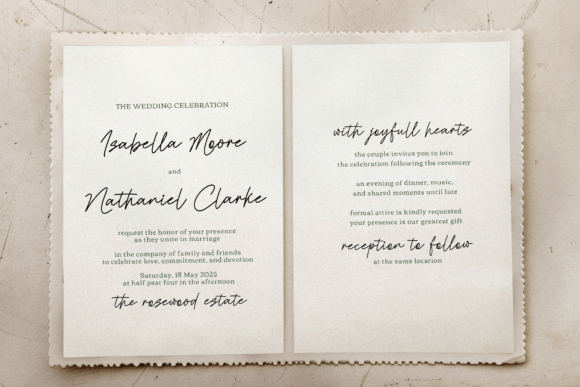 THE WEDDING CELEBRATION
Isabella Moore
and
Nathaniel Clarke
request the honor of your presence
as they unite in marriage
in the company of family and friends
to celebrate love, commitment, and devotion
Saturday, 18 May 2025
at half past four in the afternoon
the rosewood estate
with joyfull hearts
the couple invites you to join
the celebration following the ceremony
an evening of dinner, music,
and shared moments until late
formal attire is kindly requested
your presence is our greatest gift
reception to follow
at the same location